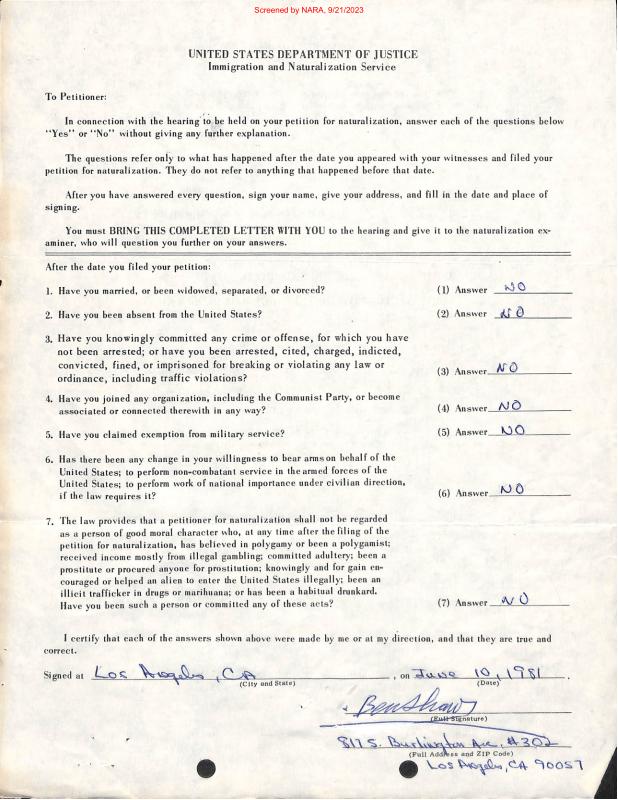 Screened by NARA, 9/21/2023
UNITED STATES DEPARTMENT OF JUSTICE
Immigration and Naturalization Service
To Petitioner:
In connection with the hearing to be held on your petition for naturalization, answer each of the questions below
"Yes" or "No" without giving any further explanation.
The questions refer only to what has happened after the date you appeared with your witnesses and filed your
petition for naturalization. They do not refer to anything that happened before that date.
After you have answered every question, sign your name, give your address, and fill in the date and place of
signing.
You must BRING THIS COMPLETED LETTER WITH YOU to the hearing and give it to the naturalization ex-
aminer, who will question you further on your answers.
After the date you filed your petition:
1. Have you married, or been widowed, separated, or divorced? (1) Answer NO
2. Have you been absent from the United States? (2) Answer NO
3. Have you knowingly committed any crime or offense, for which you have
not been arrested; or have you been arrested, cited, charged, indicted,
convicted, fined, or imprisoned for breaking or violating any law or
ordinance, including traffic violations? (3) Answer NO
4. Have you joined any organization, including the Communist Party, or become
associated or connected therewith in any way? (4) Answer NO
5. Have you claimed exemption from military service? (5) Answer NO
6. Has there been any change in your willingness to bear arms on behalf of the
United States; to perform non-combatant service in the armed forces of the
United States; to perform work of national importance under civilian direction,
if the law requires it? (6) Answer NO
7. The law provides that a petitioner for naturalization shall not be regarded
as a person of good moral character who, at any time after the filing of the
petition for naturalization, has believed in polygamy or been a polygamist;
received income mostly from illegal gambling; committed adultery; been a
prostitute or procured anyone for prostitution; knowingly and for gain en-
couraged or helped an alien to enter the United States illegally; been an
illicit trafficker in drugs or marihuana; or has been a habitual drunkard.
Have you been such a person or committed any of these acts? (7) Answer NO
I certify that each of the answers shown above were made by me or at my direction, and that they are true and
correct.
Signed at Los Angeles, CA, on June 10, 1981.
(City and State) (Date)
Ben Shaw
(Full Signature)
817 S. Burlington Ave, #302
(Full Address and ZIP Code)
Los Angeles, CA 90057